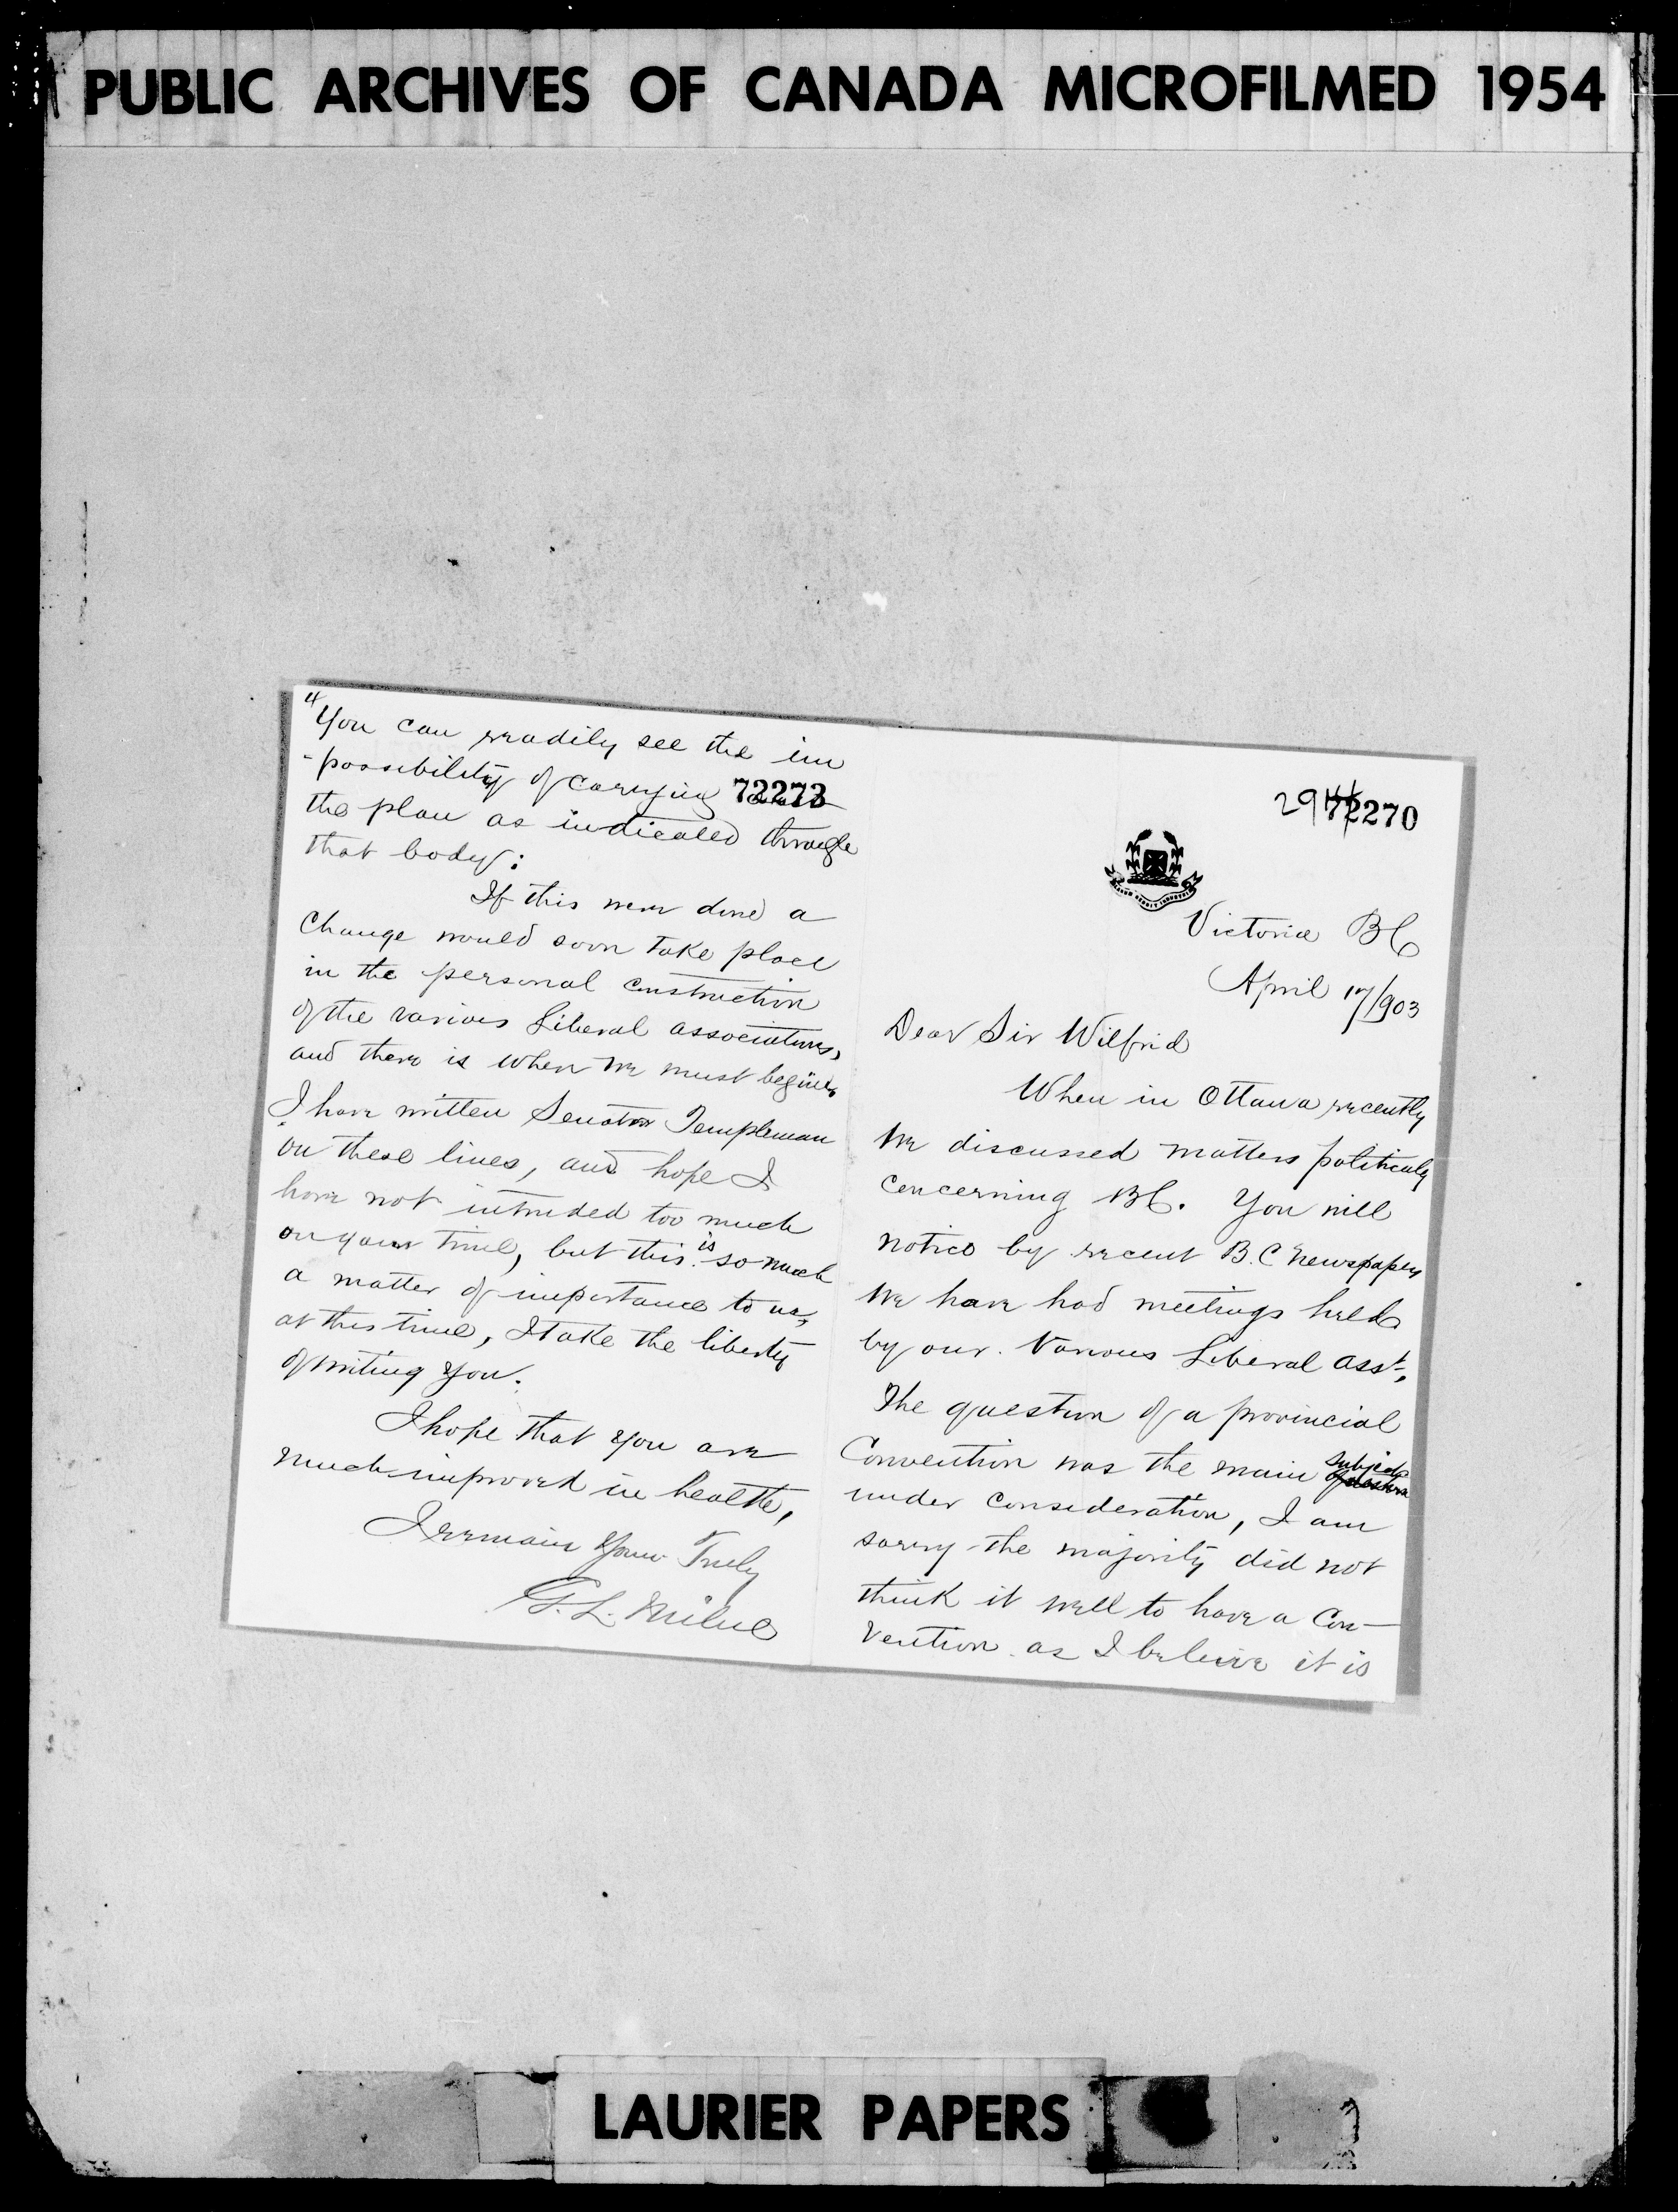 PUBLIC ARCHIVES OF CANADA MICROFILMED 1954
4
You can readily see the im
-possibility of carrying
72273
the plan as indicated through
that body:
If this were done a
Change would soon take place
in the personal construction
of the various Liberal associations,
and there is when we must begin
I have written Senator Templeman
on these lines, and hope I
have not intruded too much
on your time, but this is so much
a matter of importance to us,
at this time, I take the liberty
of writing you.
I hope that you are
much improved in health,
I remain Yours Truly
G. L. Milne
72270
Victoria BC
April 17/903
Dear Sir Wilfrid
When in Ottawa recently
We discussed matters politicaly
concerning BC. You will
notice by recent B.C Newspapers
We have had meetings held
by our various Liberal Asst,
The question of a provincial
Convention was the main Subject
under consideration, I am
sorry the majority did not
think it well to have a Con-
vention as I beleive it is
LAURIER PAPERS